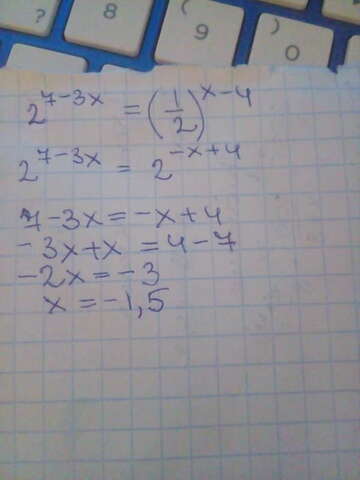 ? 8 ( 9 ) 0
2^{7-3x} = (1/2)^{x-4}
2^{7-3x} = 2^{-x+4}
7-3x = -x+4
-3x+x = 4-7
-2x = -3
x = -1,5